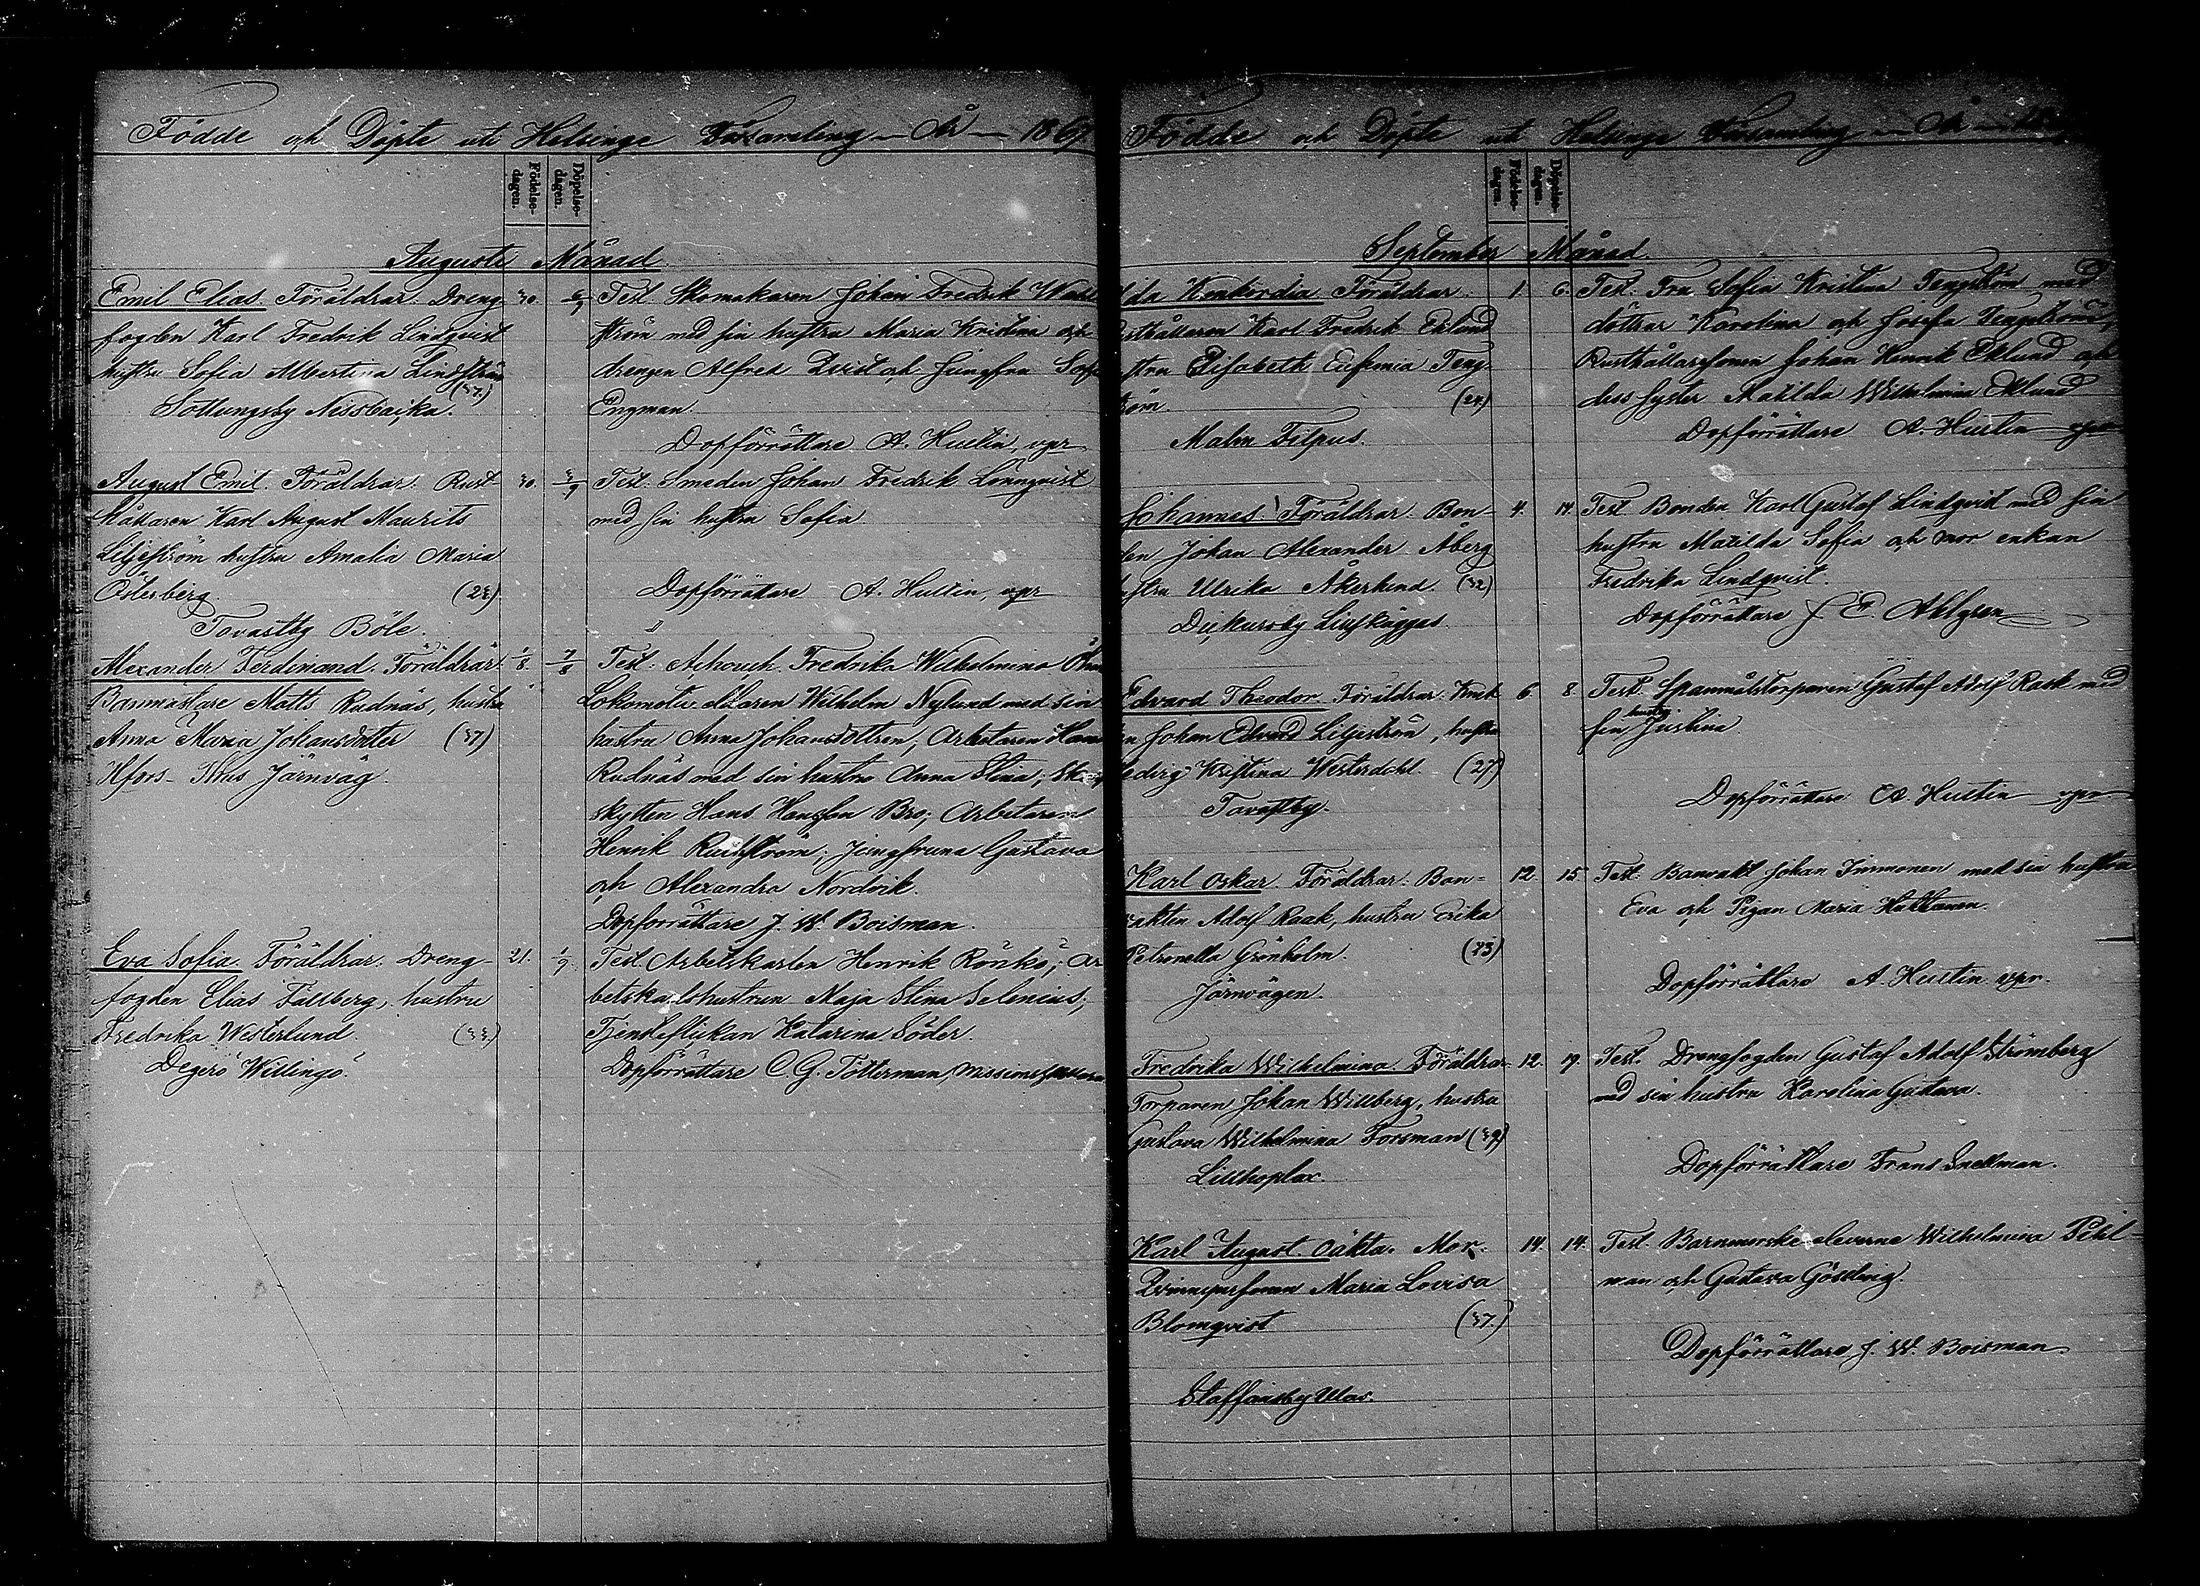 Födde och Döpte uti Helsinge Församling – År – 1867
Födelse-dagen.
Döpelse-dagen.
Augusti Månad
Emil Elias. Föräldrar. Dreng-
fogden Karl Fredrik Lindqvist
hustru Sofia Albertina Lindström
(37.)
Sottungsby Nissbacka.
30.
6/9
Test. Skomakaren Johan Fredrik
ström med sin hustru Maria Kristina och
drengen Alfred Qvist och Jungfru Sofi
Engman.
Dopförrättare A. Hustin, vpr
August Emil. Föräldrar. Rust
hållaren Karl August Maurits
Liljeström hustru Amalia Maria
Österberg. (23)
Tavastby Böle.
30.
3/9
Test. Smeden Johan Fredrik Lönnqvist
med sin hustru Sofia
Dopförrättare A. Hustin, vpr
Alexander Ferdinand. Föräldrar
Banmästare Matts Rudnäs, hustru
Anna Maria Johansdotter (37)
Hfors-Thus Järnväg.
1/8
7/8
Test. Fredrika Wilhelmina
Wilhelm Nylund med sin
hustru Anna Johansdottren, Arbetaren
Rudnäs med sin hustru Anna Stina,
skytten Hans Hansson Bro; Arbetaren
Henrik Jungfruna Gustava
och Alexandra Nordvik.
Dopförrättare J. W. Boisman.
Eva Sofia. Föräldrar. Dreng-
fogden Elias Fällberg, hustru
Fredrika Westerlund. (33)
Degerö Willingö.
21.
1/9.
Test. Arbetskarlen Henrik Rönkö; Ar
betskarlshustrun Maja Stina Selenius;
Tjensteflickan Katarina Söder.
Dopförrättare C. G. Tötterman, Missionspastor
Födde och Döpte uti Helsinge Församling – År –
Födelse-dagen.
Döpelse-dagen.
September Månad.
lda Konkordia Föräldrar.
usthållaren Karl Fredrik Eklund
stru Elisabeth Eufemia Teng-
röm. (24)
Malm Filpus.
1
6.
Test. Fru Sofia Kristina Tengström med
döttrar Karolina och Josefa Tengström,
Rusthållarsonen Johan Henrik Eklund och
dess syster Matilda Wilhelmina Eklund
Dopförrättare A. Hustin vpr
Johannes. Föräldrar. Bon-
den Johan Alexander Åberg
hustru Ulrika Åkerlund. (32)
Dickursby Liuskäggas.
4.
14.
Test. Bonden Karl Gustaf Lindqvist med sin
hustru Matilda Sofia och mor enkan
Fredrika Lindqvist.
Dopförrättare J. E. Ahlgren
Edvard Theodor. Föräldrar. Knek
en Johan Edvard Liljeström, hustru
edvig Kristina Westerdahl. (27)
Tavastby.
6.
8.
Test. Spannmålstorparen Gustaf Adolf Raak med
sin hustru Justina.
Dopförrättare A. Hustin vpr
Karl Oskar. Föräldrar. Ban-
vakten Adolf Raak, hustru Erika
Petronella Grönholm. (23)
Järnvägen.
12.
15
Test. Banvakt Johan Immonen med sin hustru
Eva och Pigan Maria
Dopförrättare A. Hustin vpr.
Fredrika Wilhelmina. Föräldrar.
Torparen Johan Willberg, hustru
Gustava Wilhelmina Forsman (39)
Lillhoplax.
12.
19.
Test. Drengfogden Gustaf Adolf Strömberg
med sin hustru Karolina Gustava.
Dopförrättare Frans Snellman.
Karl August. oäkta. Mor.
Qvinnspersonen Maria Lovisa
Blomqvist (37.)
Staffansby
14.
14.
Test. Barnmorske-eleverne Wilhelmina Pihl-
man och Gustava
Dopförrättare J. W. Boisman.